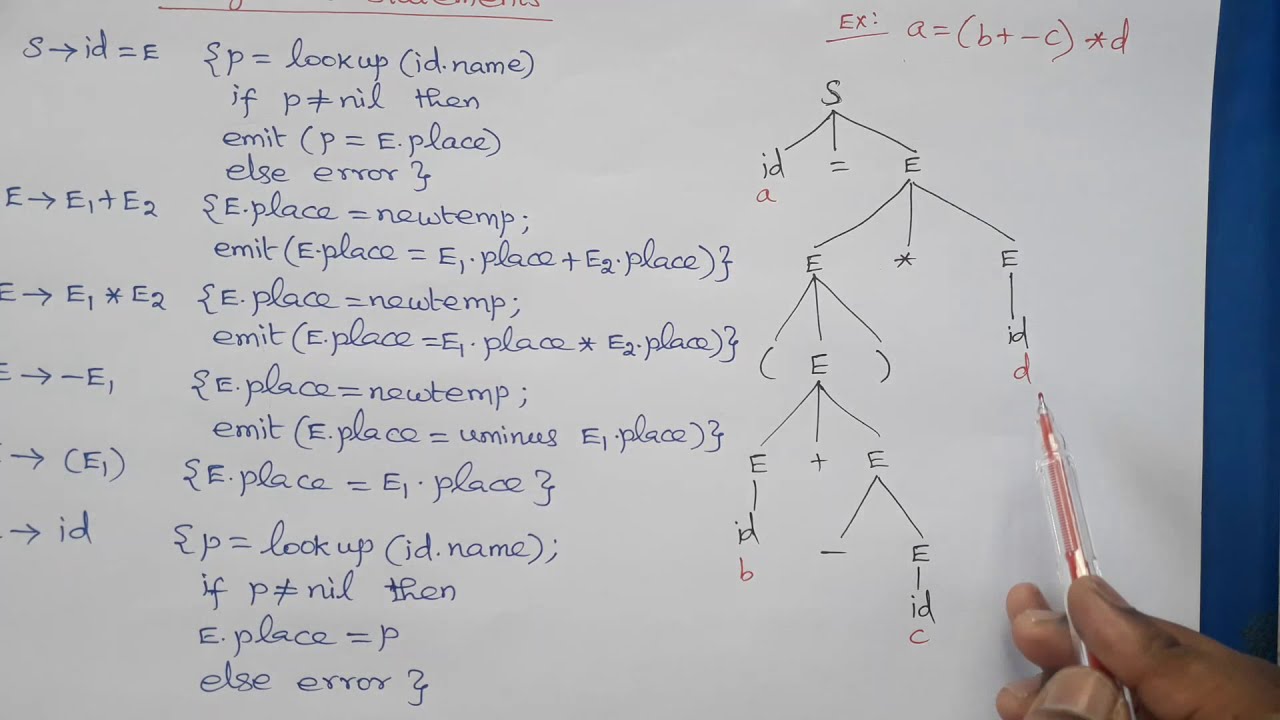 Statements
S → id = E {p = lookup (id.name)
if p ≠ nil then
emit (p = E.place)
else error}
E → E₁ + E₂ {E.place = newtemp;
emit (E.place = E₁.place + E₂.place)}
E → E₁ * E₂ {E.place = newtemp;
emit (E.place = E₁.place * E₂.place)}
E → -E₁ {E.place = newtemp;
emit (E.place = uminus E₁.place)}
→ (E₁) {E.place = E₁.place}
→ id {p = lookup (id.name);
if p ≠ nil then
E.place = p
else error}
Ex: a = (b + - c) * d
S
id = E
a
E * E
( E ) id
d
E + E
id - E
b id
c